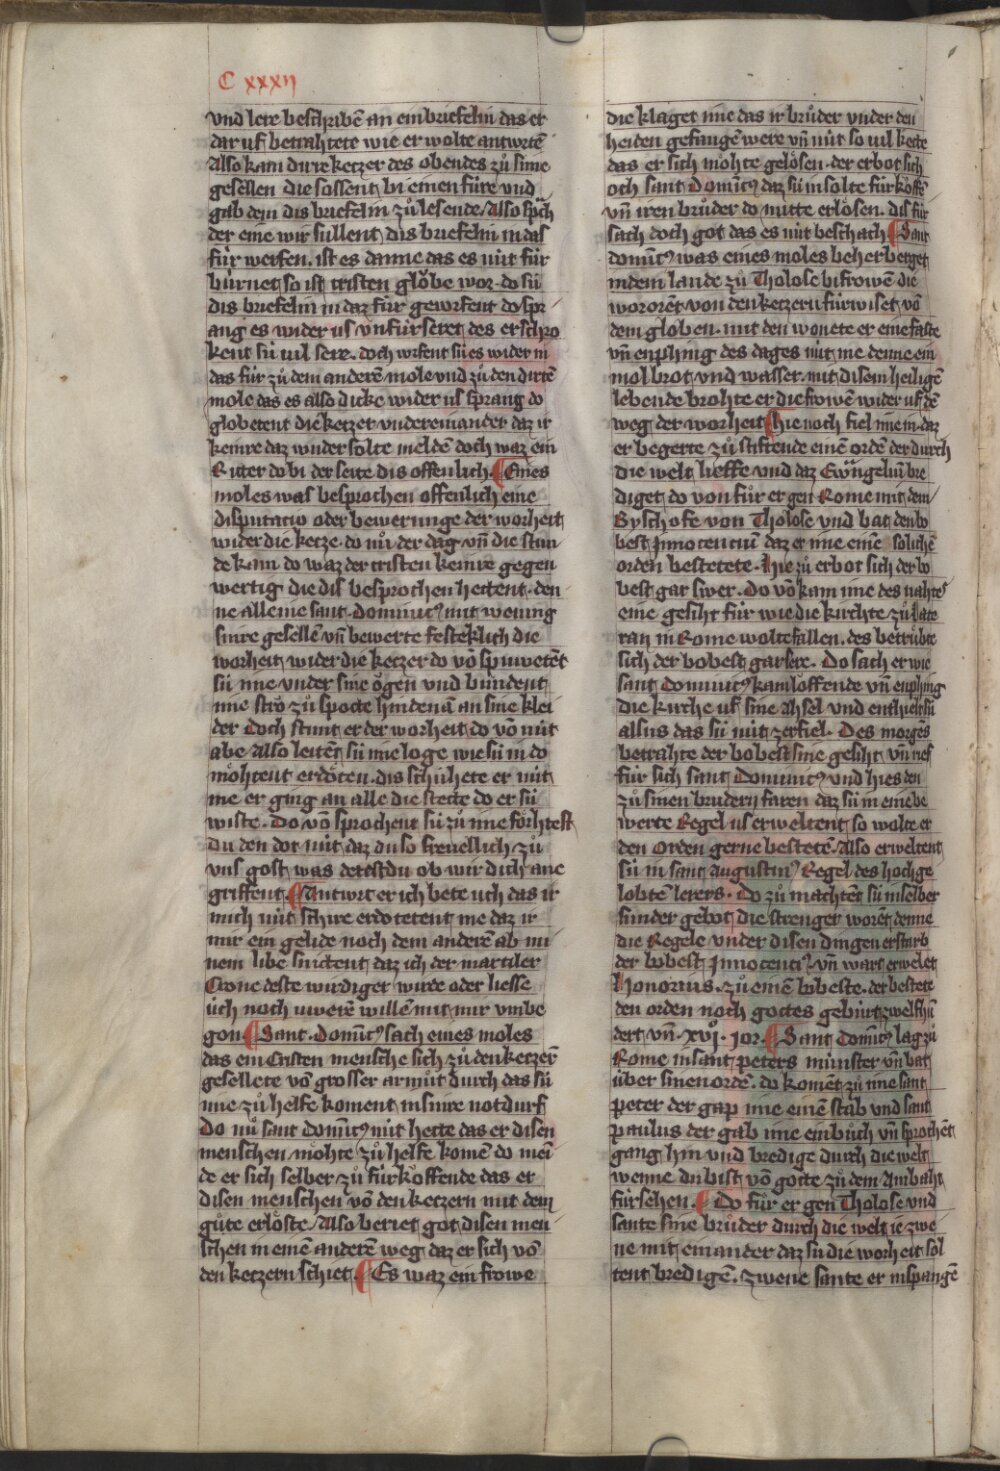 C xxxij
vnd lere beschribē an ein briefelin das er
dar vf betrahtete wie er wolte antwrtē
Also kam dirre ketzer des obendes zů sime
gesellen die sossent bi einen fúre vnd
gab dem dis briefelin zů lesende / Also sprach
der eine wir sullent dis briefelin in das
fúr werfen . ist es danne das es nút fúr
búrnet so ist cristen glŏbe wor . do sú
dis briefelin in daz fúr geworfent do spr
ang es wider us vnfúrseret des erschro
kent sú uil sere . doch wrfent sú es wider in
das fúr zů dem anderē mole vnd zů den dirtē
mole das es also dicke wider us sprang do
globetent die ketzer vndereinander daz ir
keinre daz wnder solte meldē doch waz ein
Ritter do bi der seite dis offenlich . Eines
moles was besprochen offenlich eine
disputatio oder bewerunge der worheit
wider die ketze . do nů der dag vn̄ die stun
de kam do waz der cristen keinre gegen
wertig die dis besprochen hettent . den
ne alleine sant . dominicꝰ mit wening
sinre gesellē vn̄ bewerte festeklich die
worheit wider die ketzer do vō spuwetēt
sú ime vnder sine ŏgen vnd bundent
ime strŏ zů spotte hindenā an sine klei
der doch stunt er der worheit do vō nút
abe / Also leitēt sú ime loge wie sú in do
mŏhtent erdŏten . dis schuhete er nút
me er ging an alle die stette do er sú
wiste . Do vō sprochent sú zů ime fŏrhtest
du den dot nút daz du so freuellich zů
vns gost was detestdu ob wir dich ane
griffent / Antwrt er ich bete uch das ir
mich nút schire erdŏtetent me daz ir
mir ein gelide noch dem anderē ab mi
nem libe snident daz ich der martiler
Crone deste wirdiger wurde oder liesse
úch noch uwerē willē mit mir vmbe
gon Sant . Domīcꝰ sach eines moles
das ein Cristen mensche sich zů den ketzerē
gesellete vō grosser armůt durch das sú
ime zů helfe koment in sinre notdurf
Do nů sant domīcꝰ nút hette das er disen
menschen mŏhte zů helfe komē do mei
de er sich selber zů fúrkŏffende das er
disen menschen vō den ketzern mit dem
gůte erlŏste / Also beriet got disen men
schen in einē anderē weg daz er sich vō
den ketzern schiet . Es waz ein frowe
die klaget ime das ir brůder vnder den
heiden gefangē were vn̄ nút so uil hette
das er sich mŏhte gelŏsen . der erbot sich
och sant Domīcꝰ daz sú in solte fúrkŏffē
vn̄ iren brůder do mitte erlŏsen . dis fúr
sach doch got das es nút beschach Sant
domīcꝰ was eines moles beherberget
in dem lande zů Tholose bi frowē die
wororēt von den ketzern fúrwiset vō
dem globen . mit den wonete er eine faste
vn̄ enphing des dages nút me denne ein
mol brot vnd wasser . mit disem heiligē
lebende brohte er die frowē wider uf dē
weg der worheit hie noch fiel ime in . daz
er begerte zů stiftende einē ordē der durch
die welt lieffe vnd daz Ewāgeliū bre
diget . do von fůr er gen Rome mit dem
Byschofe von Tholose vnd bat den bo
best Innocenciū daz er ime einē solichē
orden bestetete . Hie zů erbot sich der bo
best gar swer . Do vō kam ime des nahtes
eine gesiht fúr wie die kirchte zů late
ran in Rome wolte fallen . des betrůbte
sich der bobest gar sere . Do sach er wie
sant dominicꝰ kam lŏffende vn̄ enphing
die kirche uf sine ahsel vnd enthielt sú
alsus das sú nút zerfiel . Des morgēs
betrahte der bobest sine gesiht vn̄ rief
fúr sich sant Dominicꝰ vnd hies den
zů sinen brudern faren daz sú in eine be
werte Regel us erweltent so wolte er
den Orden gerne bestetē . Also erweltent
sú in sant Augustinꝰ Regel des hochge
lobtē lerers . Do zů machtēt sú in selber
sunder gebot die strenger worēt denne
die Regele vnder disen dingen erstarb
der bobest Innocenciꝰ vn̄ wart erwelet
Honorius . zů einē bobeste . der bestete
den orden noch gottes gebúrt zwelfhū
dert vn̄ . xvi . Jor . Sant domīcꝰ lag zů
Rome in sant peters múnster vn̄ bat
úber sinen ordē . do komēt zů ime sant
peter der gap ime einē stab vnd sant
paulus der gab ime ein bůch vn̄ sprochēt
gang hin vnd bredige durch die welt
wenne du bist vō gotte zů dem Ambaht
fúrsehen . Do fůr er gen Tholose vnd
sante sine brůder durch die welt ie zwe
ne mit einander daz sú die worheit sol
tent bredigē . zwene sante er in spangē